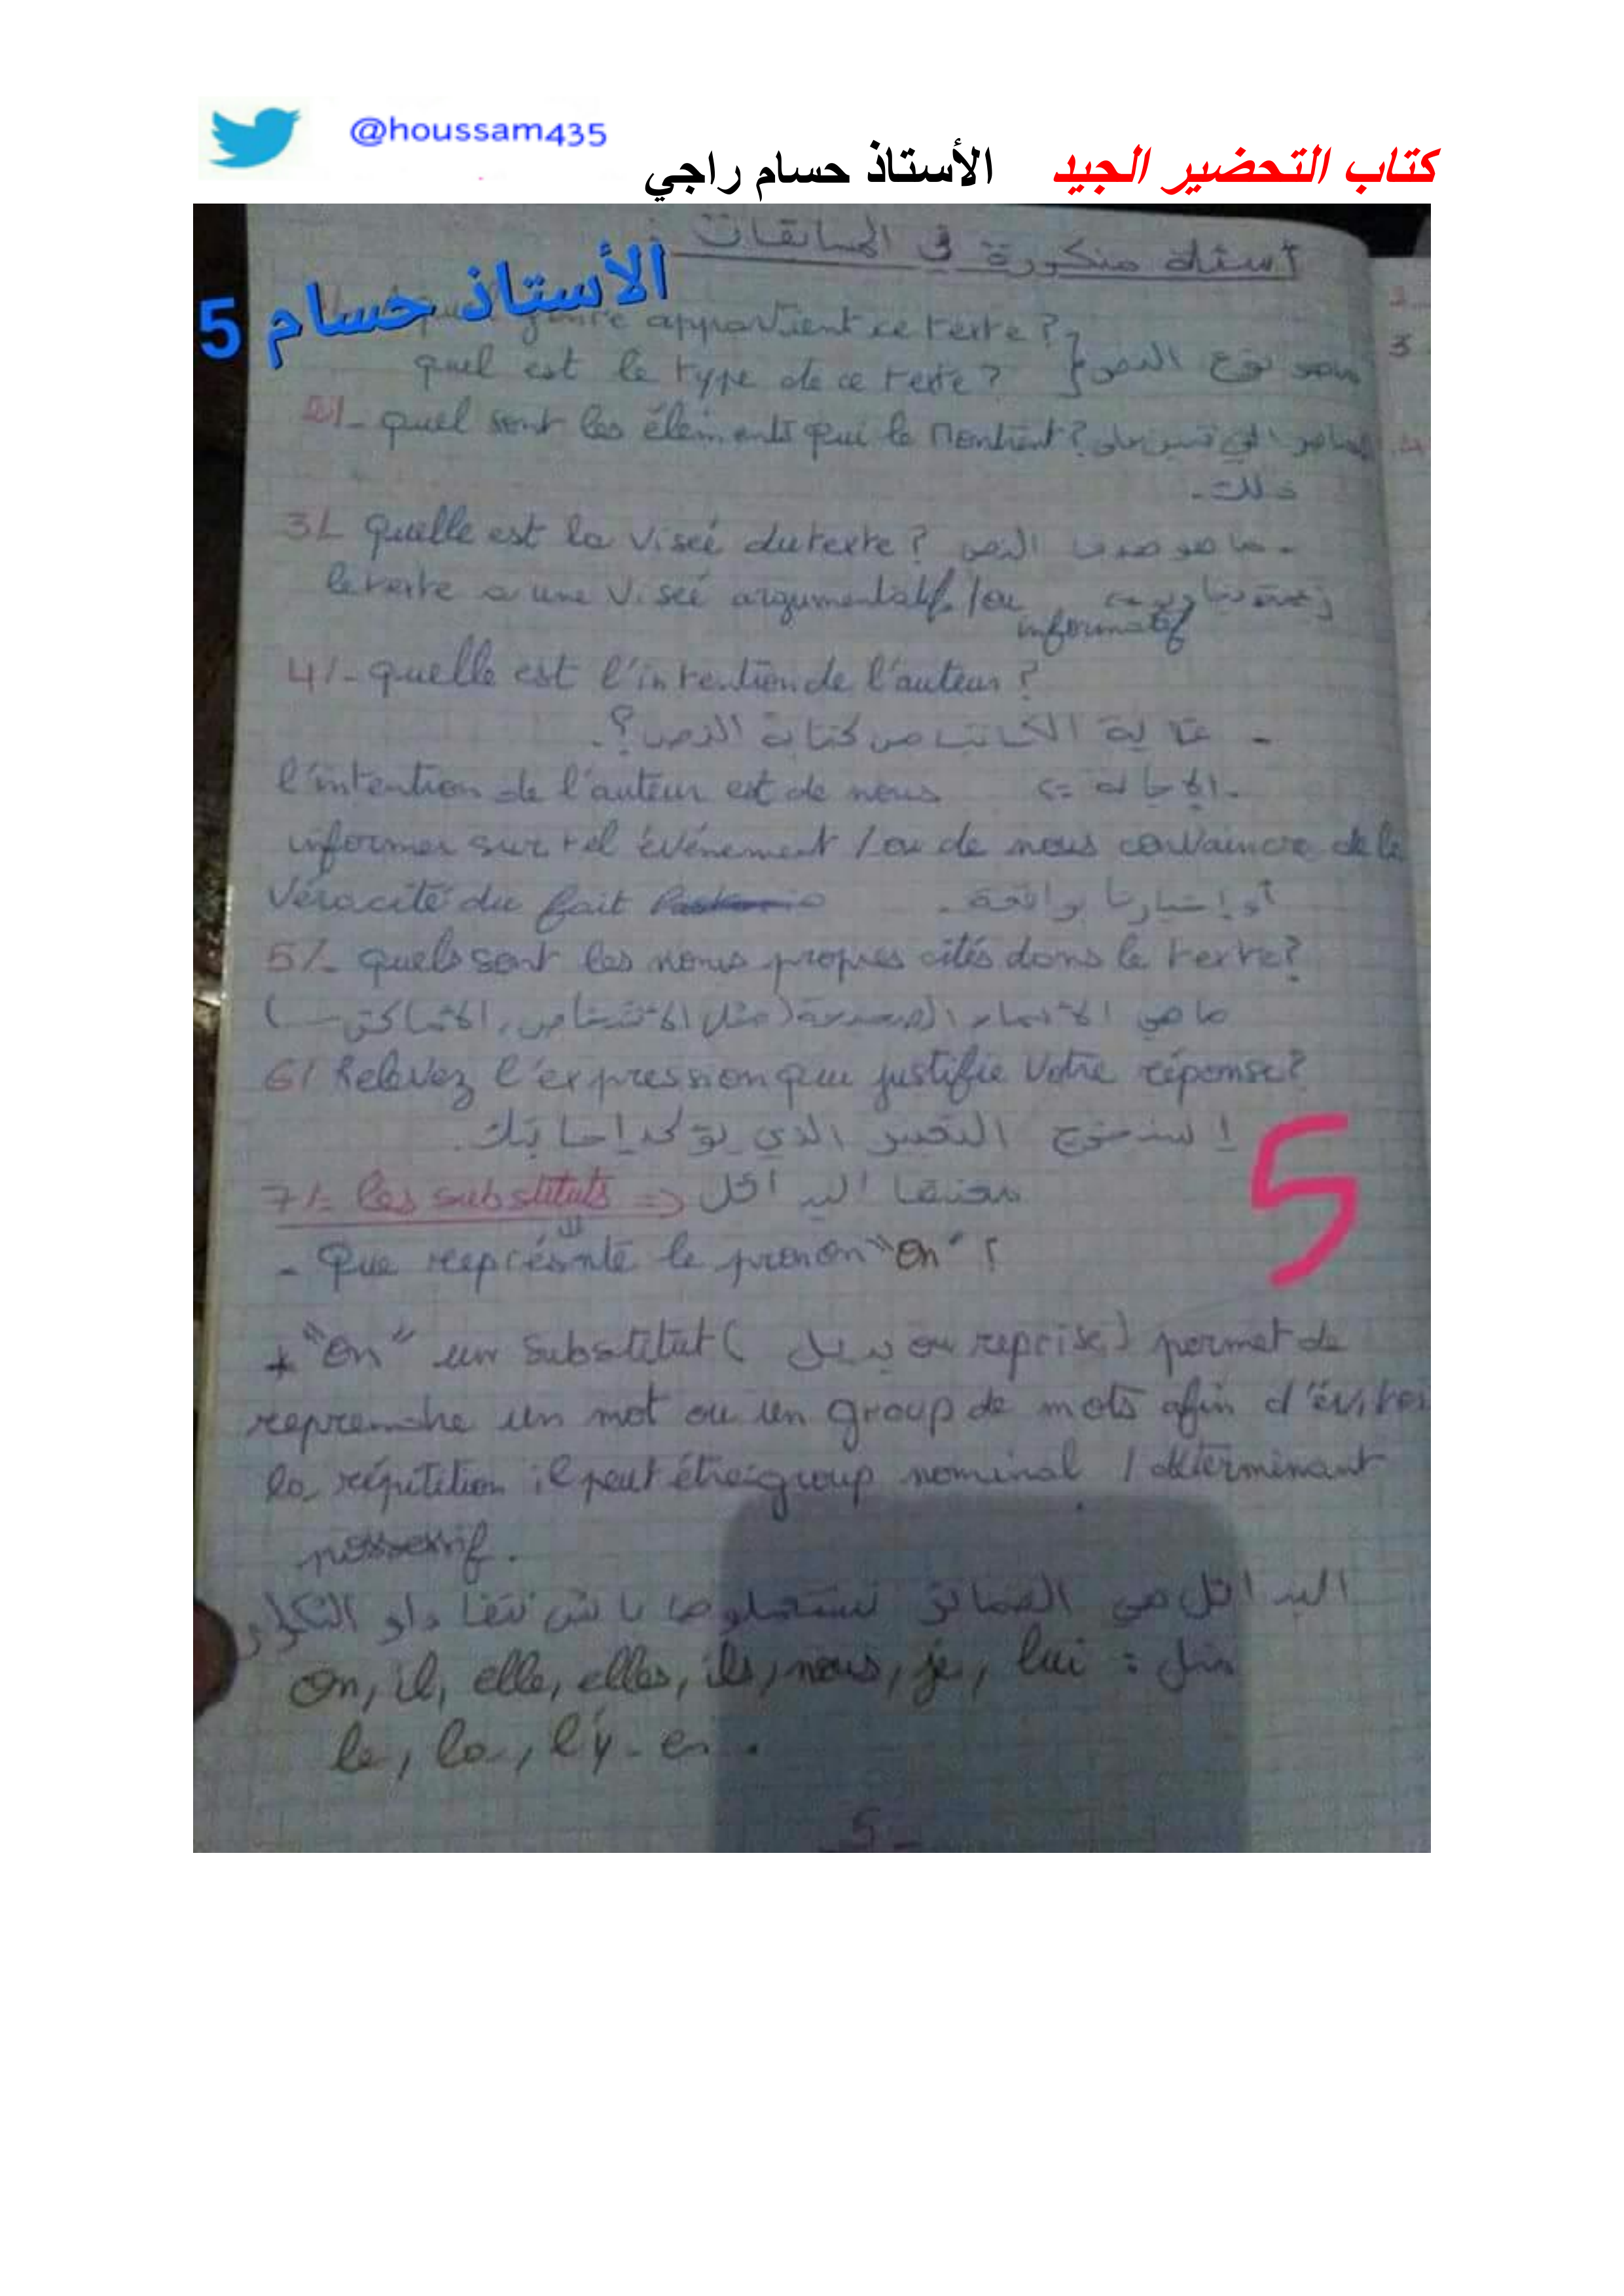 @houssam435
كتاب التحضير الجيد الأستاذ حسام راجي
أسئلة متكررة في المسابقات :
الأستاذ حسام 5
appartient ce texte ?
quel est le type de ce texte ? } ماهو نوع النص
2/- quel sont les éléments qui le Montrent ? التي تبين على
ذلك.
3/- quelle est la viseé du texte ? ما هو هدف النص -
le texte a une viseé argumentatif /ou
informatif
4/- quelle est l'intention de l'auteur ?
- غاية الكاتب من كتابة النص؟.
l'intention de l'auteur est de nous
informer sur tel événement /ou de nous convaincre de la
véracité du fait أو إخبارنا بواقعة .
5/- quels sont les noms propres cités dans le texte ?
ما هي الأسماء (مثل الأشخاص، الأماكن ...)
6/ Relevez l'expression qui justifie votre réponse ?
إستخرج التعبير الذي يؤكد إجابتك.
7/- les substituts => معناها البدائل
- Que représente le pronon "on" ?
* "on" un substitut ( بديل ou reprise) permet de
reprendre un mot ou un group de mots afin d'éviter
la répétition il peut être group nominal / déterminant
possessif.
البدائل هي الضمائر نستعملوها باش نتفادو التكرار
مثل : On, il, elle, elles, ils, nous, je, lui
le, la, l'y - en .
5
- 5 -
2
3
4